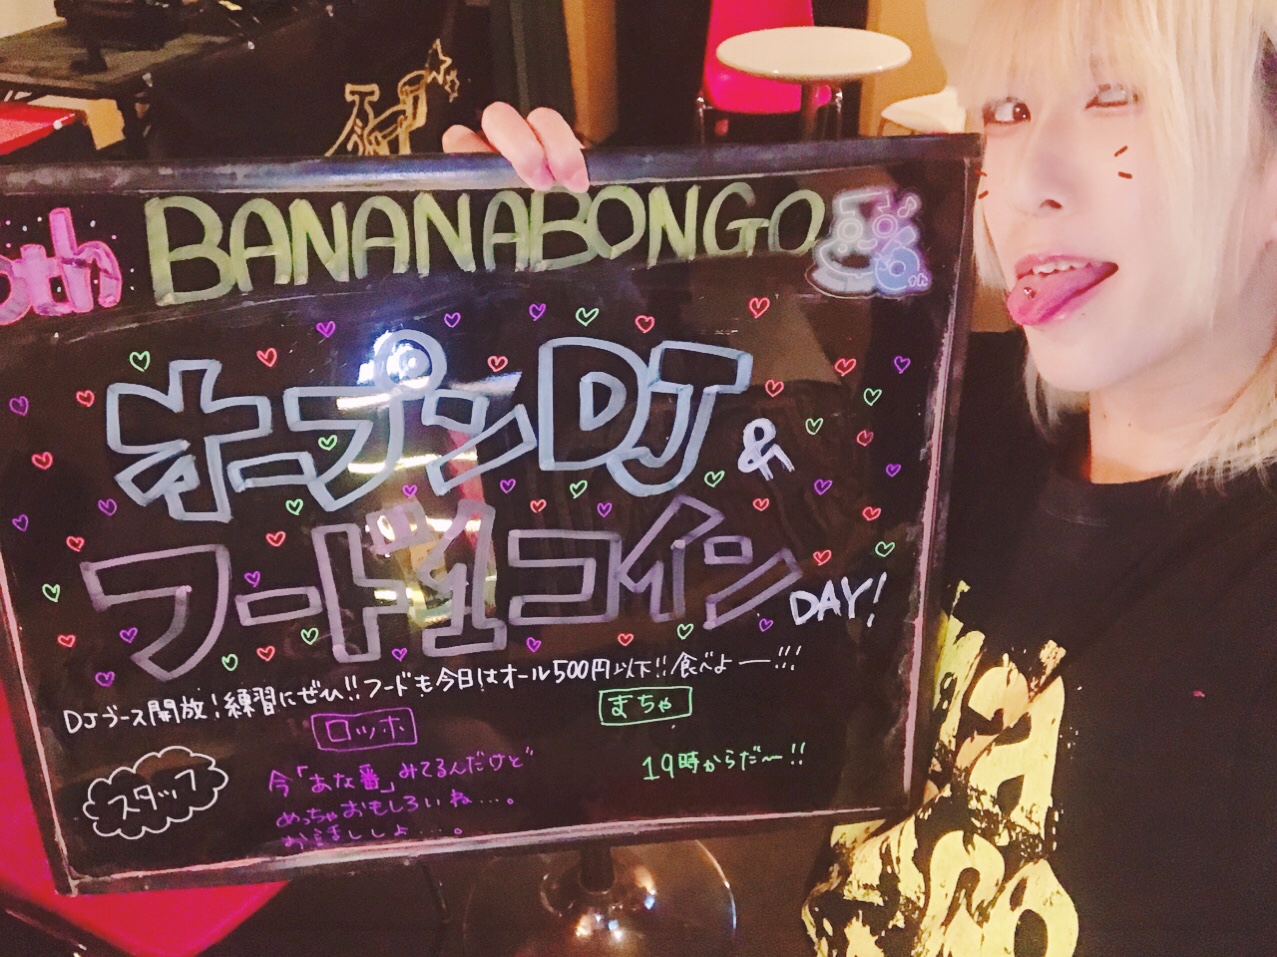 th BANANABONGO
オープンDJ &
フード1コインDAY!
DJブース開放!練習にぜひ!!フードも今日はオール500円以下!!食べよー!!!
スタッフ
ロッホ
今「あな番」みてるんだけど
めっちゃおもしろいね...。
お話ししよ...。
まちゃ
19時からだ〜!!